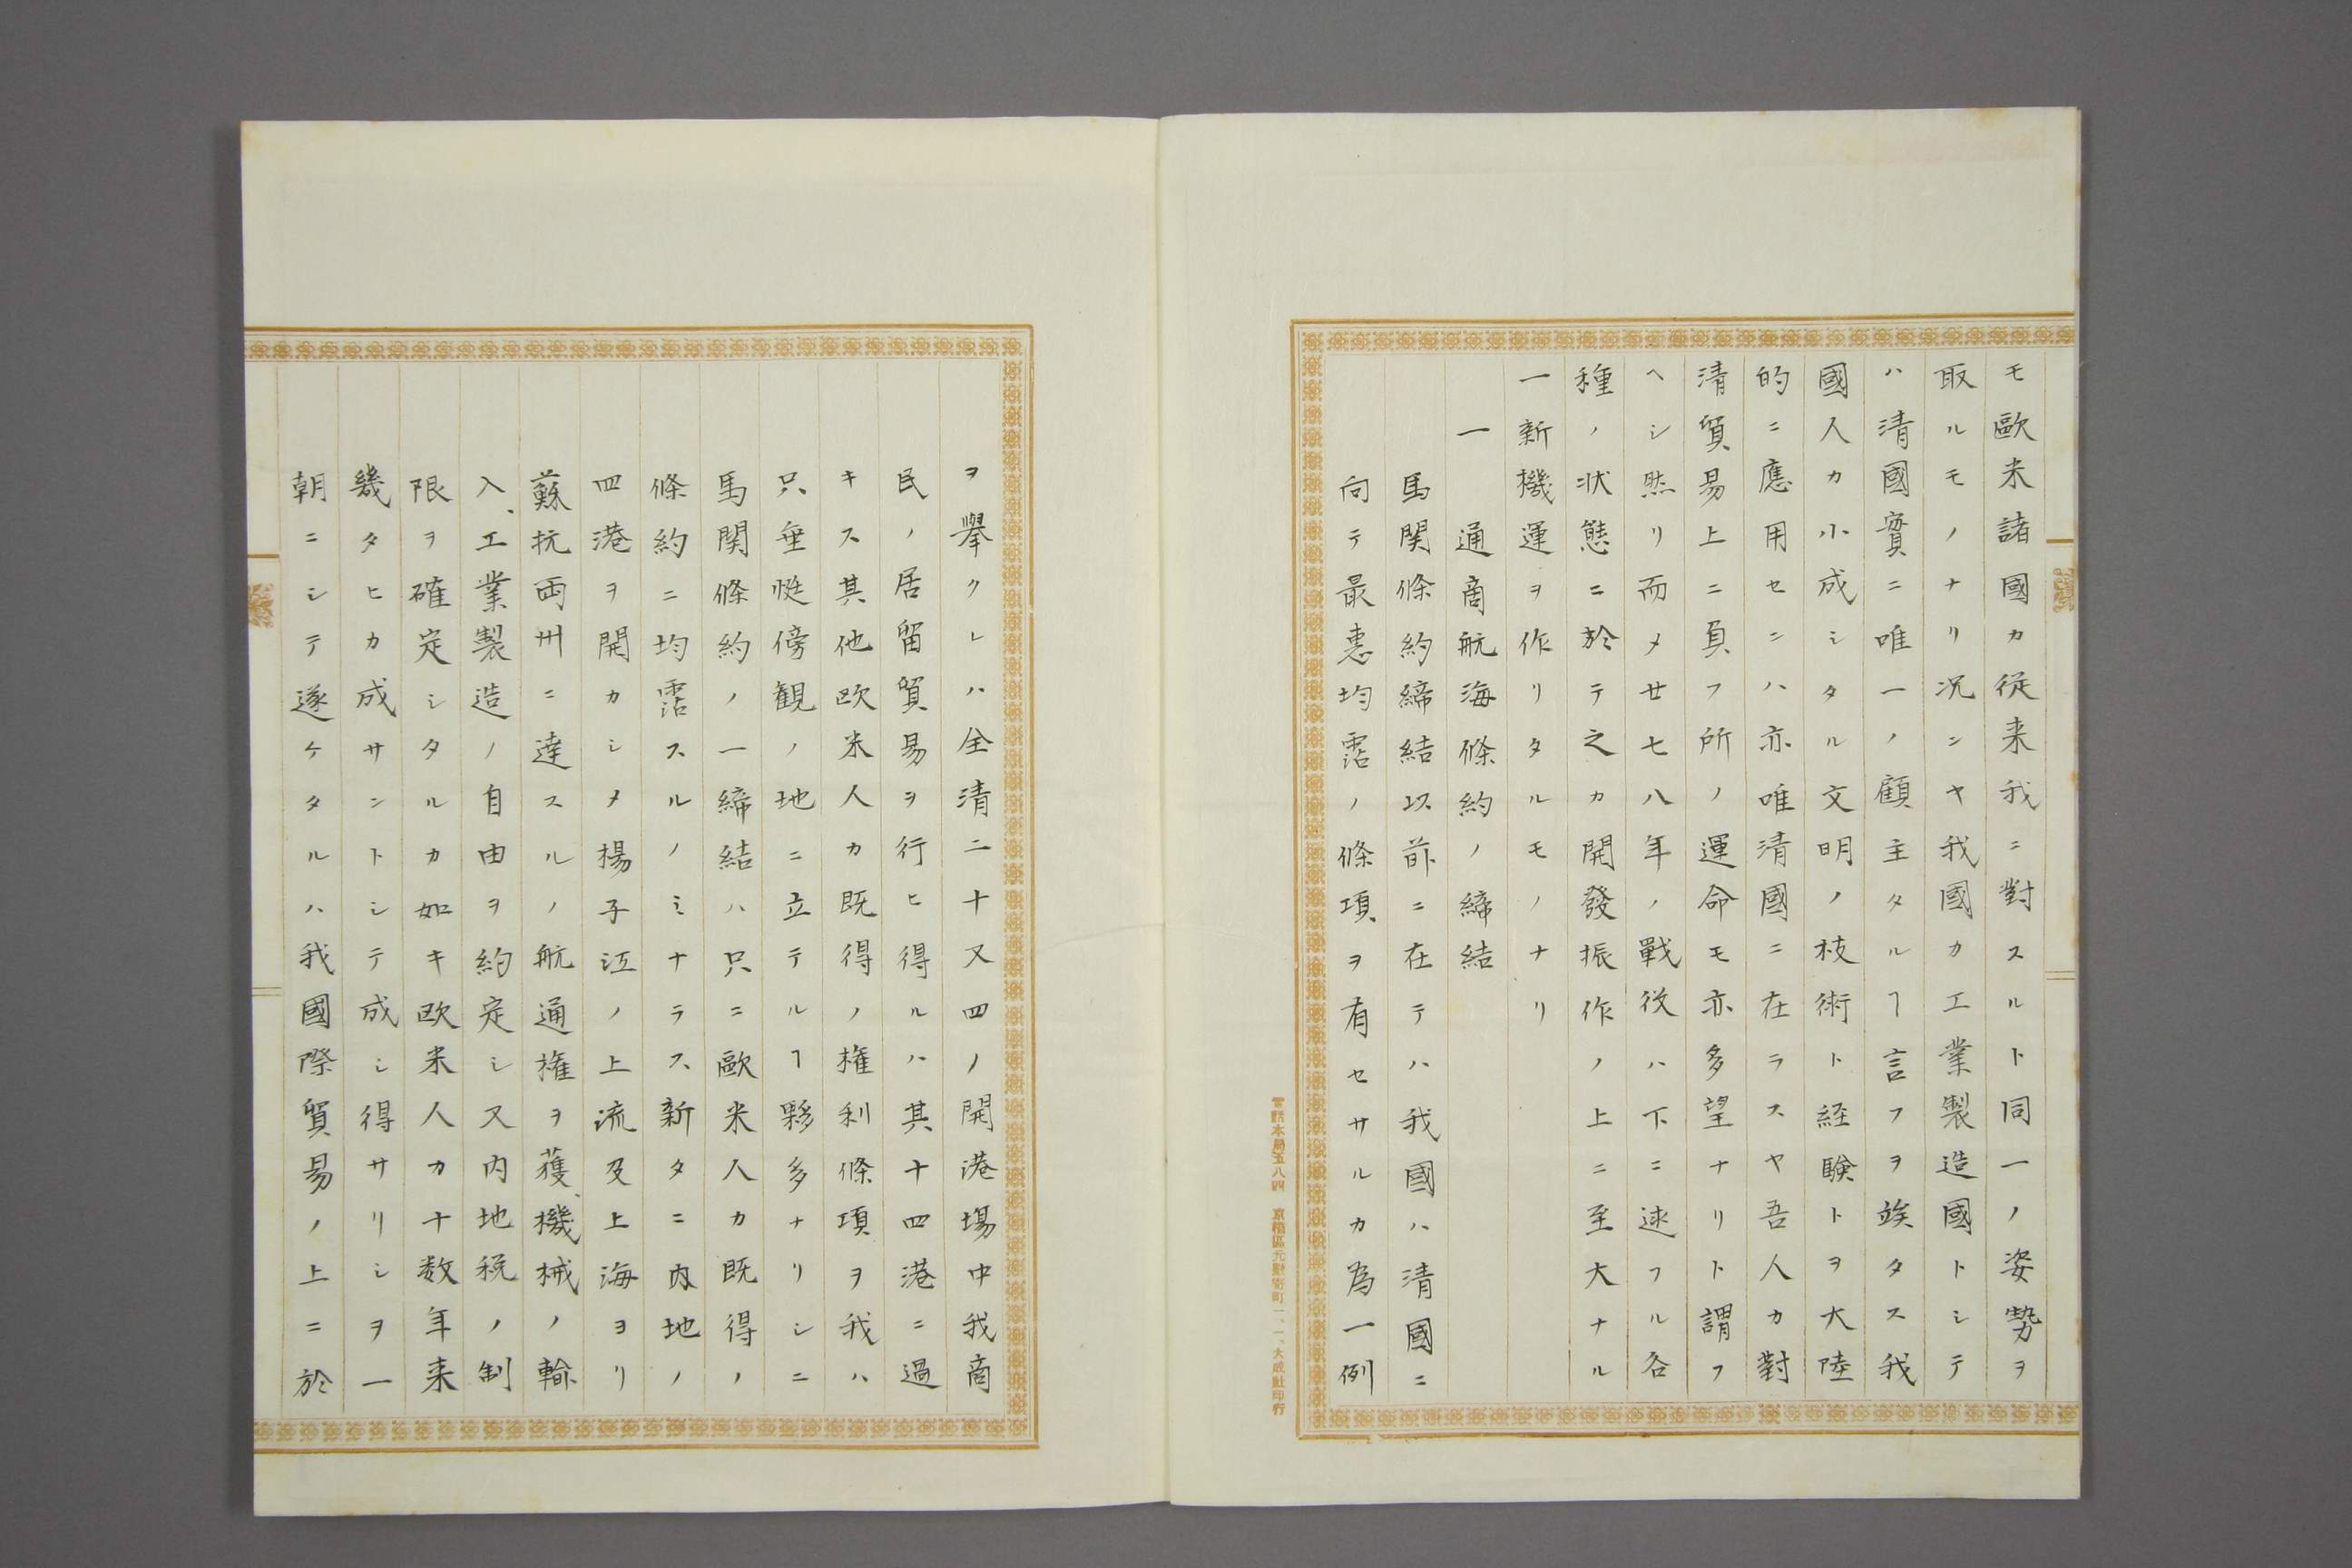 モ歐米諸國カ従来我ニ對スルト同一ノ姿勢ヲ
取ルモノナリ况ンヤ我國カ工業製造國トシテ
ハ清國實ニ唯一ノ顧主タルヿ言フヲ竢タス我
國人カ小成シタル文明ノ枝術ト経験トヲ大陸
的ニ應用セニハ亦唯清國ニ在ラスヤ吾人カ對
清貿易上ニ負フ所ノ運命モ亦多望ナリト謂フ
ヘシ然リ而メ廿七八年ノ戰役ハ下ニ逑フル各
種ノ状態ニ於テ之カ開發振作ノ上ニ至大ナル
一新機運ヲ作リタルモノナリ
一　通商航海條約ノ締結
馬関條約締結以前ニ在テハ我國ハ清國ニ
向テ最恵均霑ノ條項ヲ有セサルカ為一例
ヲ擧クレハ全清二十又四ノ開港場中我商
民ノ居留貿易ヲ行ヒ得ルハ其十四港ニ過
キス其他欧米人カ既得ノ権利條項ヲ我ハ
只垂涎傍観ノ地ニ立テルヿ夥多ナリシニ
馬関條約ノ一締結ハ只ニ歐米人カ既得ノ
條約ニ均霑スルノミナラス新タニ内地ノ
四港ヲ開カシメ揚子江ノ上流及上海ヨリ
蘇抗両州ニ達スルノ航通権ヲ獲、機械ノ輸
入、工業製造ノ自由ヲ約定シ又内地税ノ制
限ヲ確定シタルカ如キ欧米人カ十数年来
幾タヒカ成サントシテ成シ得サリシヲ一
朝ニシテ遂ケタルハ我國際貿易ノ上ニ於